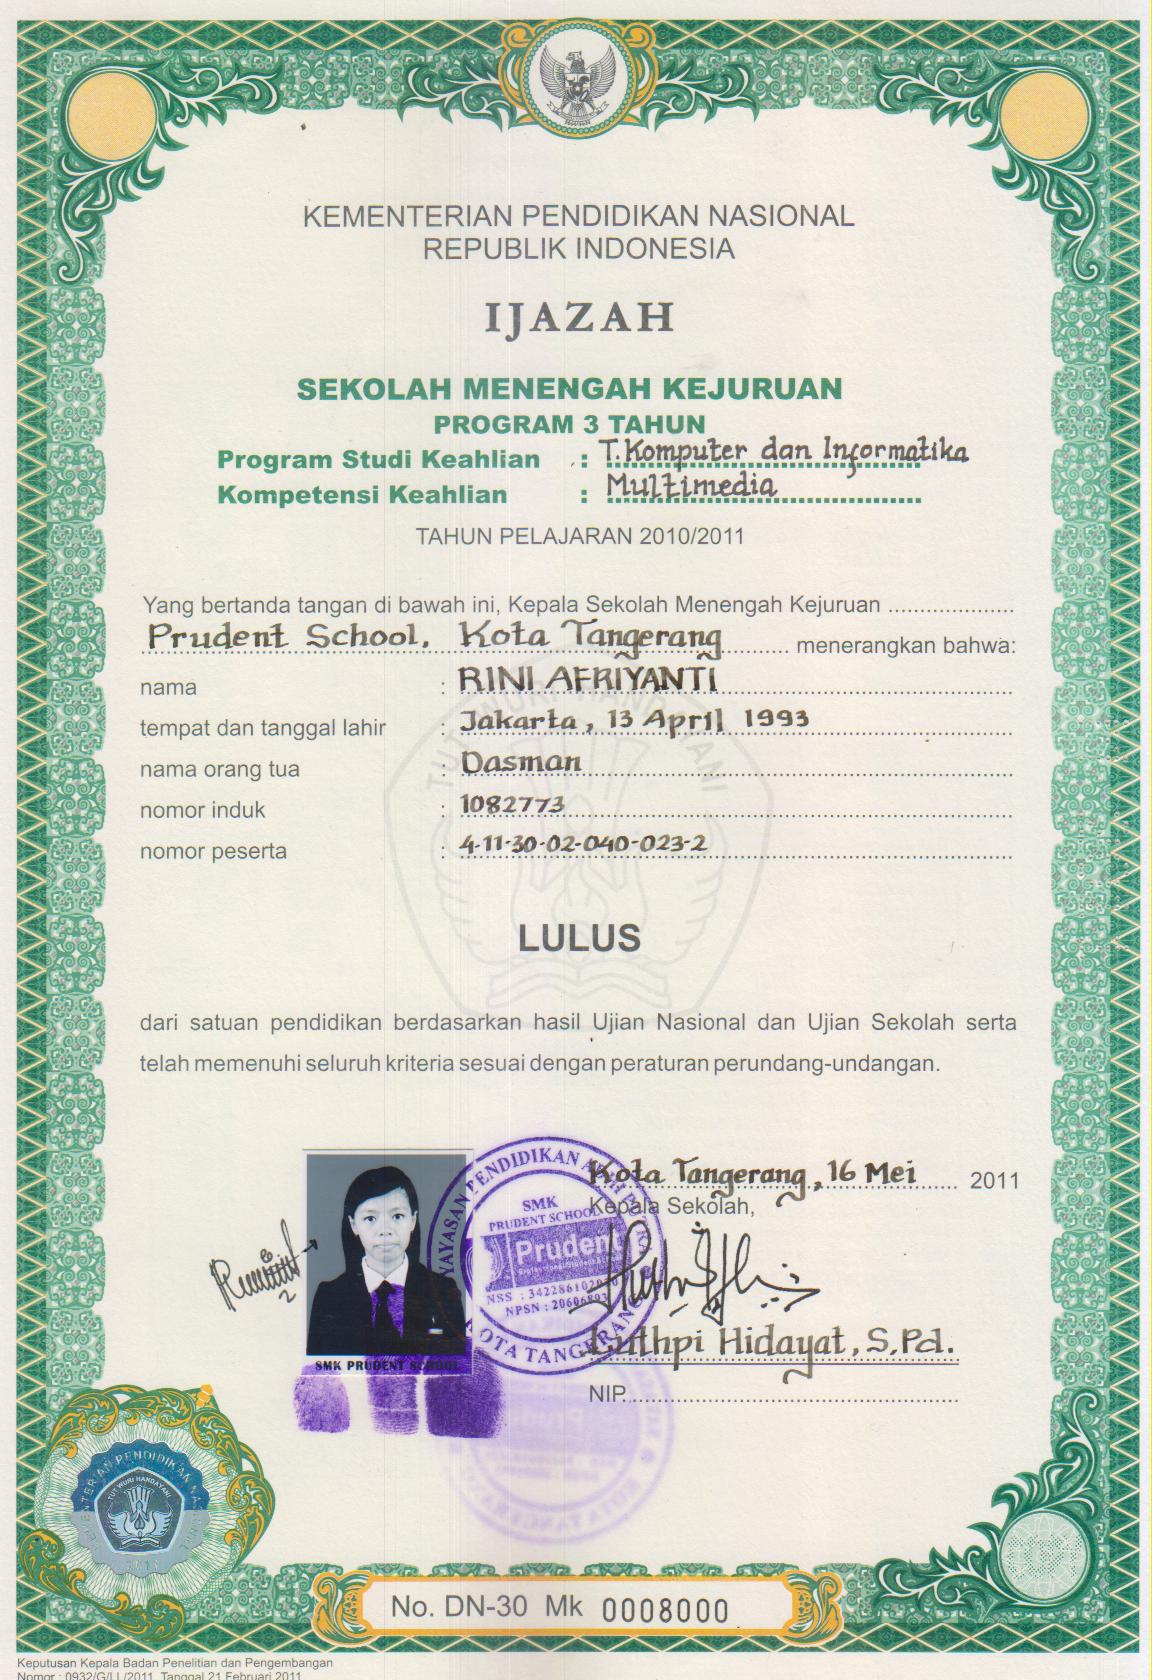 KEMENTERIAN PENDIDIKAN NASIONAL
REPUBLIK INDONESIA
IJAZAH
SEKOLAH MENENGAH KEJURUAN
PROGRAM 3 TAHUN
Program Studi Keahlian : T.Komputer dan Informatika
Kompetensi Keahlian : Multimedia
TAHUN PELAJARAN 2010/2011
Yang bertanda tangan di bawah ini, Kepala Sekolah Menengah Kejuruan ....................
Prudent School, Kota Tangerang menerangkan bahwa:
nama : RINI AFRIYANTI
tempat dan tanggal lahir : Jakarta, 13 April 1993
nama orang tua : Dasman
nomor induk : 1082773
nomor peserta : 4-11-30-02-040-023-2
TUT WURI HANDAYANI
LULUS
dari satuan pendidikan berdasarkan hasil Ujian Nasional dan Ujian Sekolah serta
telah memenuhi seluruh kriteria sesuai dengan peraturan perundang-undangan.
Kota Tangerang, 16 Mei 2011
Kepala Sekolah,
YAYASAN PENDIDIKAN
SMK
PRUDENT SCHOOL
Prudent
NPSN : 20606893
KOTA TANGERANG
SMK PRUDENT SCHOOL
Luthpi Hidayat, S.Pd.
NIP.
TUT WURI HANDAYANI
No. DN-30 Mk 0008000
Keputusan Kepala Badan Penelitian dan Pengembangan
Nomor : 0932/G/LL/2011, Tanggal 21 Februari 2011